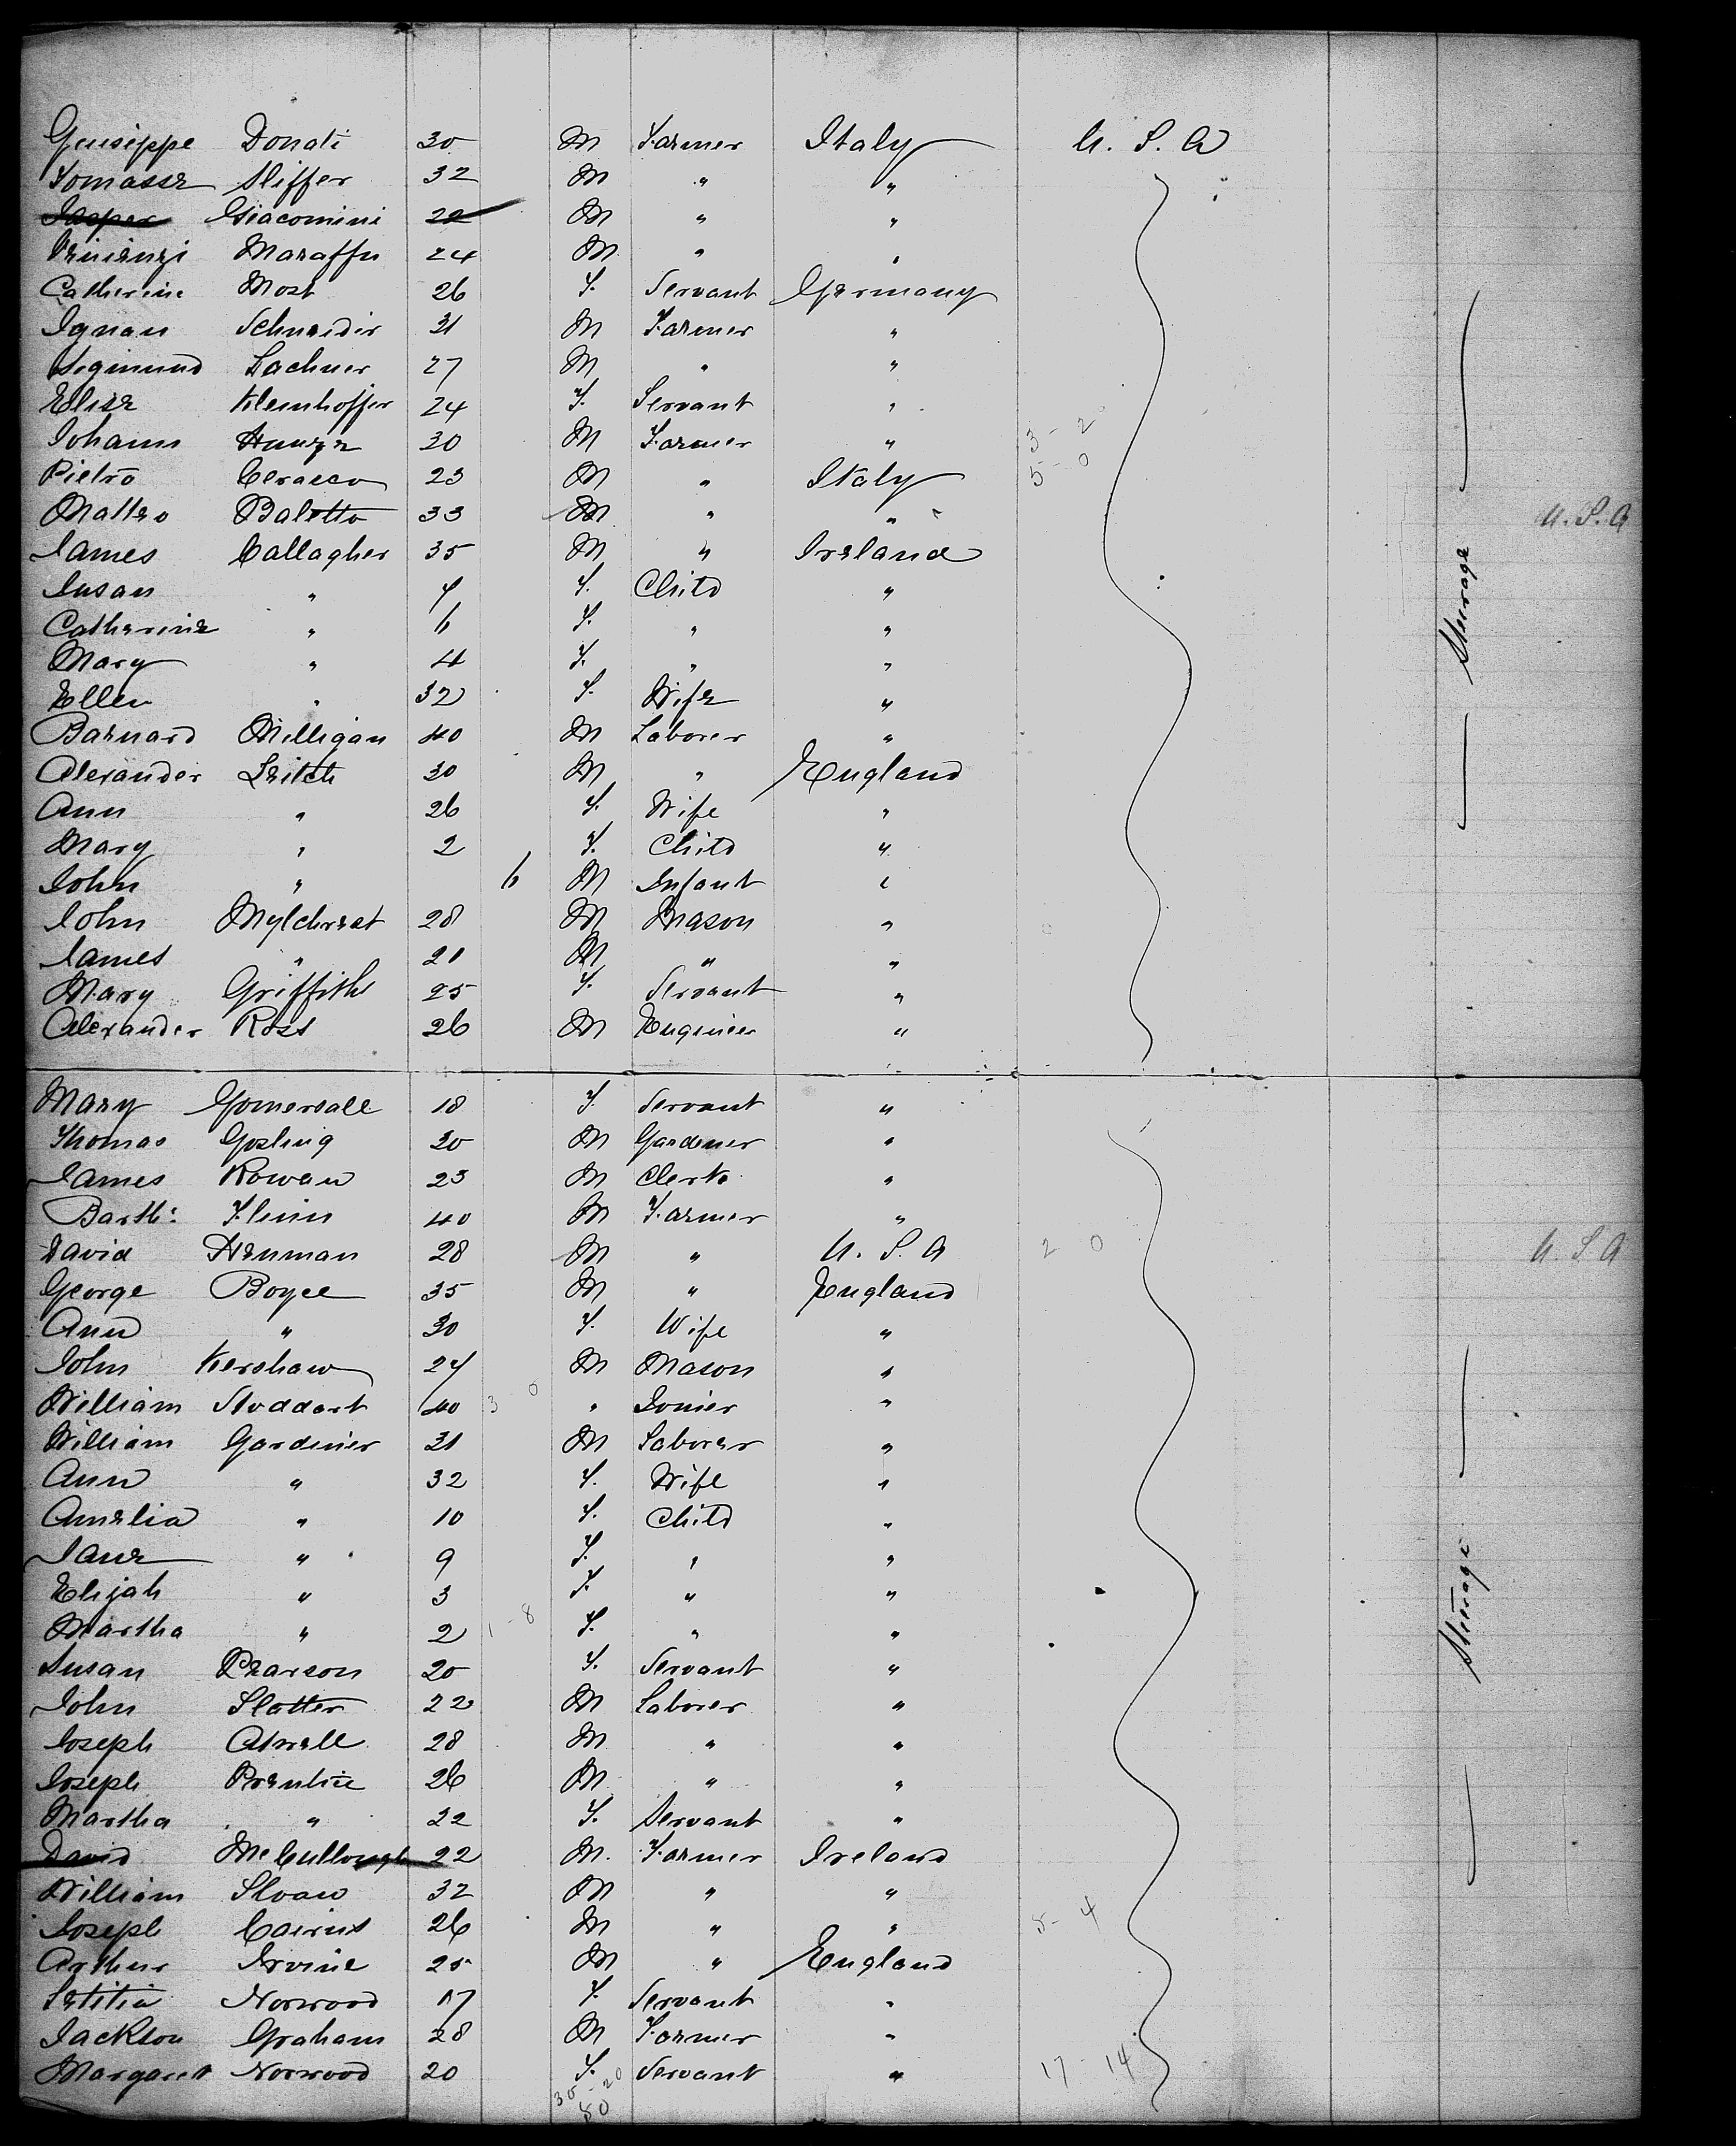 Guiseppe Donati 30 M Farmer Italy U. S. A
Tomasse Sliffer 32 M " "
Jasper Giacomini 22 M " "
Maraffu 24 M " "
Catherine Most 26 F. Servant Germany
Ignan Schneider 31 M Farmer "
Sigmund Lachner 27 M " "
Elise Kleinhoffer 24 F. Servant "
Johann 30 M Farmer " 3 - 2
Pietro Cerasco 23 M " Italy 5 - 0
Matteo Balotto 33 M " " U. S. A
James Callagher 35 M " Ireland
Susan " 7 F. Child "
Catherine " 6 F. " "
Mary " 4 F. " "
Ellen " 32 F. Wife "
Barnard Milligan 40 M Laborer "
Alexander Leitch 30 M " England
Ann " 26 F. Wife "
Mary " 2 F. Child "
John " 6 M Infant "
John Mylchrest 28 M Mason "
James " 21 M " "
Mary Griffiths 25 F. Servant "
Alexander Ross 26 M Engineer "
Steerage
Mary Gomersall 18 F. Servant "
Thomas Gosling 30 M Gardener "
James Rowan 23 M Clerk "
Barth: Flinn 40 M Farmer "
David Henman 28 M " U. S. A 2 0 U. S. A
George Boyce 35 M " England
Ann " 30 F. Wife "
John Kershaw 27 M Mason "
William Stoddart 40 3 0 " Joiner "
William Gardiner 31 M Laborer "
Ann " 32 F. Wife "
Amelia " 10 F. Child "
Jane " 9 F. " "
Elijah " 3 F. " "
Martha " 2 1 - 8 F. " "
Susan Pearson 20 F. Servant "
John Slatter 22 M Laborer "
Joseph Atwell 28 M " "
Joseph Prentice 26 M " "
Martha " 22 F. Servant "
David McCullough 22 M. Farmer Ireland
William Sloan 32 M " "
Joseph Cairns 26 M " " 5 - 4
Arthur Irvine 25 M " England
Letitia Norwood 17 F. Servant "
Jackson Graham 28 M Farmer "
Margaret Norwood 20 F. Servant " 17 - 14
30 - 20
50
Steerage